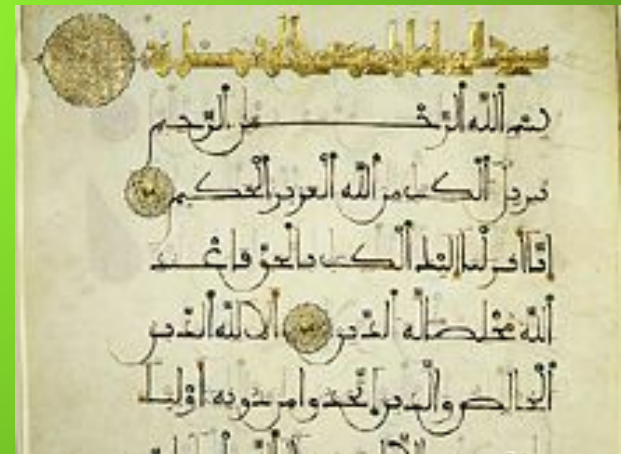 بسم الله الرحمن الرحيم
تنزيل الكتب من الله العزيز الحكيم
إنا أنزلنا إليك الكتب بالحق فاعبد
الله مخلصا له الدين ألا لله الدين
الخالص والذين اتخذوا من دونه أولياء